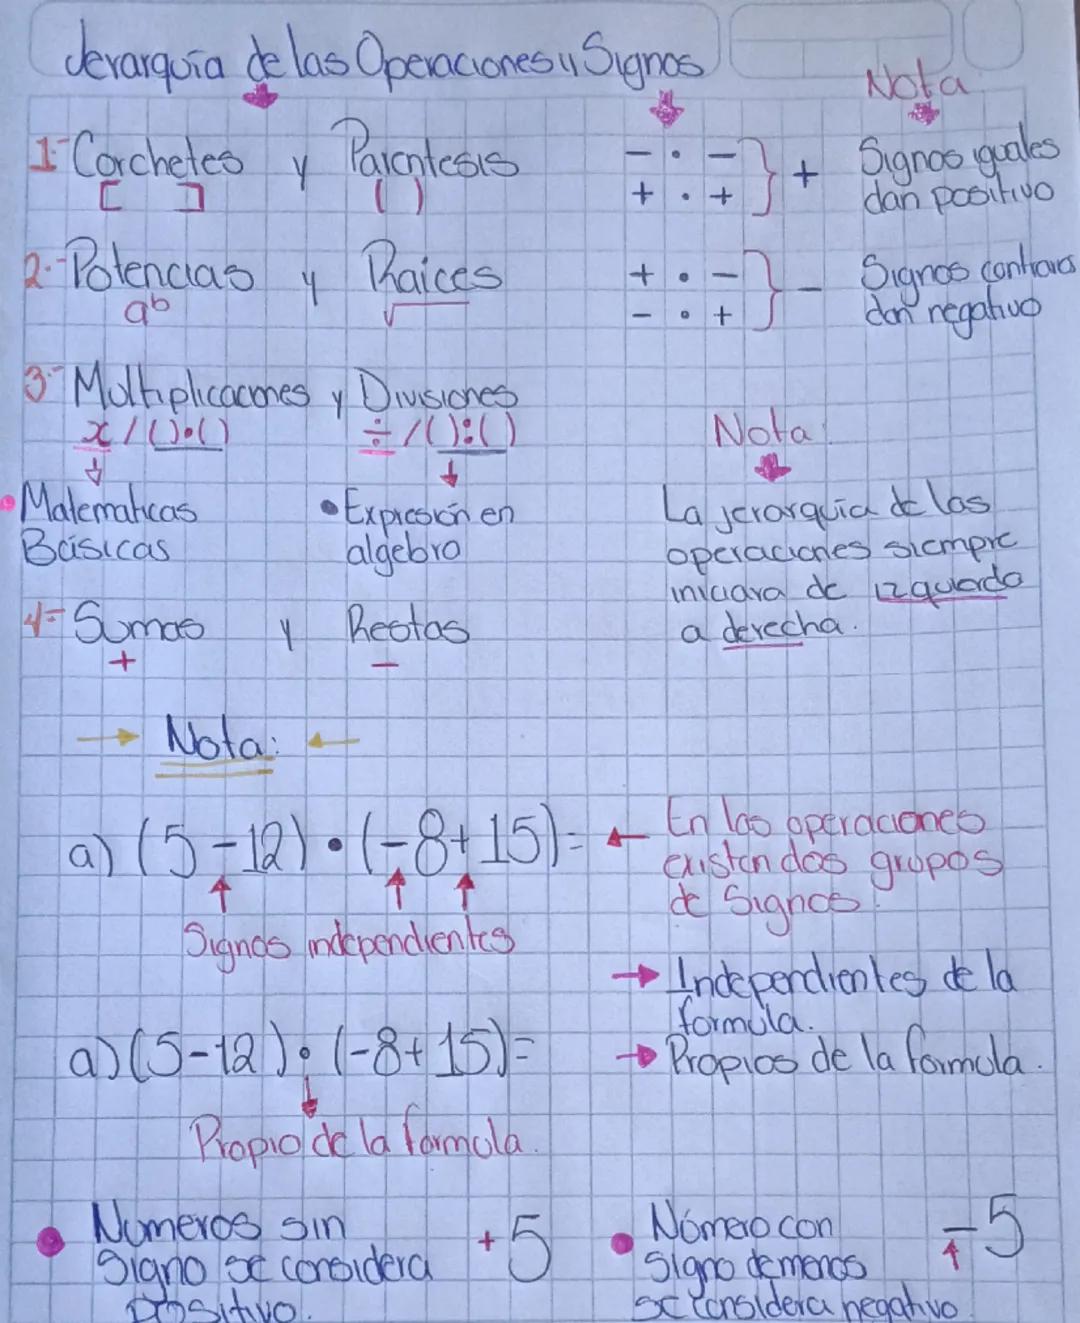 Jerarquía de las Operaciones y Signos
Nota
1.- Corchetes y Parentesis
[ ] ( )
- · -
+ · + } +
Signos iguales
dan positivo
2.- Potencias y Raices
a^b √
+ · -
- · + } -
Signos contrarios
dan negativo
3.- Multiplicaciones y Divisiones
x / ()·() ÷ / ():()
• Matematicas
Básicas
• Expresión en
algebra
Nota
La jerarquía de las
operaciones siempre
iniciara de izquierda
a derecha.
4.- Sumas y Restas
+ -
Nota:
a) (5-12)·(-8+15)=
Signos independientes
En las operaciones
existen dos grupos
de Signos.
→ Independientes de la
formula.
→ Propios de la formula.
a) (5-12)·(-8+15)=
Propio de la formula.
• Numeros sin
signo se considera
positivo.
+5
• Número con
signo de menos
se considera negativo.
-5